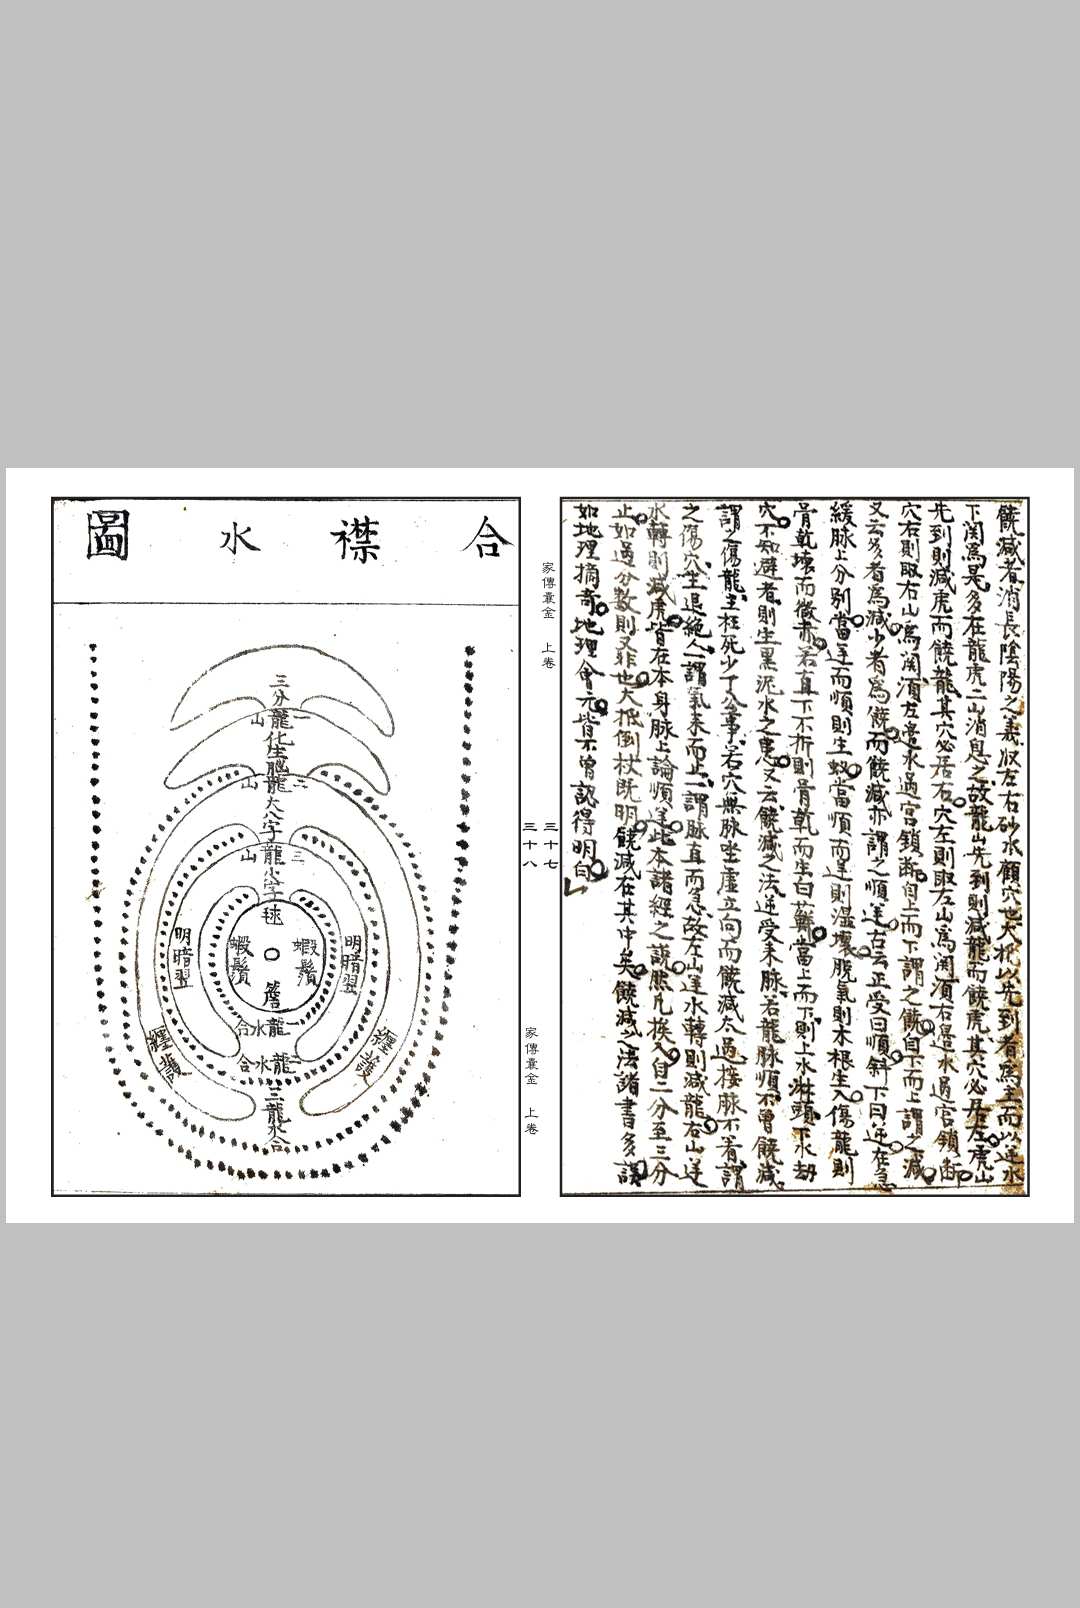 饒減者消長陰陽之義收左右砂水顧穴也大抵以先到者為主而以逆水
下関為是多在龍虎二山消息之故龍山先到則減龍而饒虎其穴必居左虎山
先到則減虎而饒龍其穴必居右穴左則取左山為関須右邉水過宮鎖断
穴右則取右山為関須左邉水過宮鎖断自上而下謂之饒自下而上謂之減
又云多者為減少者為饒而饒減亦謂之順逆古云正受曰順斜下曰逆在急
緩脉上分别當逆而順則生蚁當順而逆則濕壞脱氣則木根生入傷龍則
骨乾壞而微赤若直下不折則骨乾而生白蘚當上而下則上水淋頭下水劫
穴不知避者則生黒泥水之患又云饒減之法逆受来脉若龍脉順不曾饒減
謂之傷龍主枉死少丁公事若穴無脉坐虚立向而饒減太過接脉不着謂
之傷穴主退絶人謂氣来而止謂脉直而急故左山逆水轉則減龍右山逆
水轉則減虎皆在本身脉上論順逆此本諸經之説然凡挨入自二分至三分
止如過分数則又非也大抵倒杖既明饒減在其中矣饒減之法諸書多誤
如地理摘奇地理會元皆不曾認得明白
家傳彙金 上卷
三十七
三十八
家傳彙金 上卷
合襟水圖
三分龍化生腦龍大八字龍小字毬
一山
二山
三山
蝦鬚
蝦鬚
簷
明暗翌
明暗翌
纏護
纏護
一龍水合
二龍水合
三龍水合